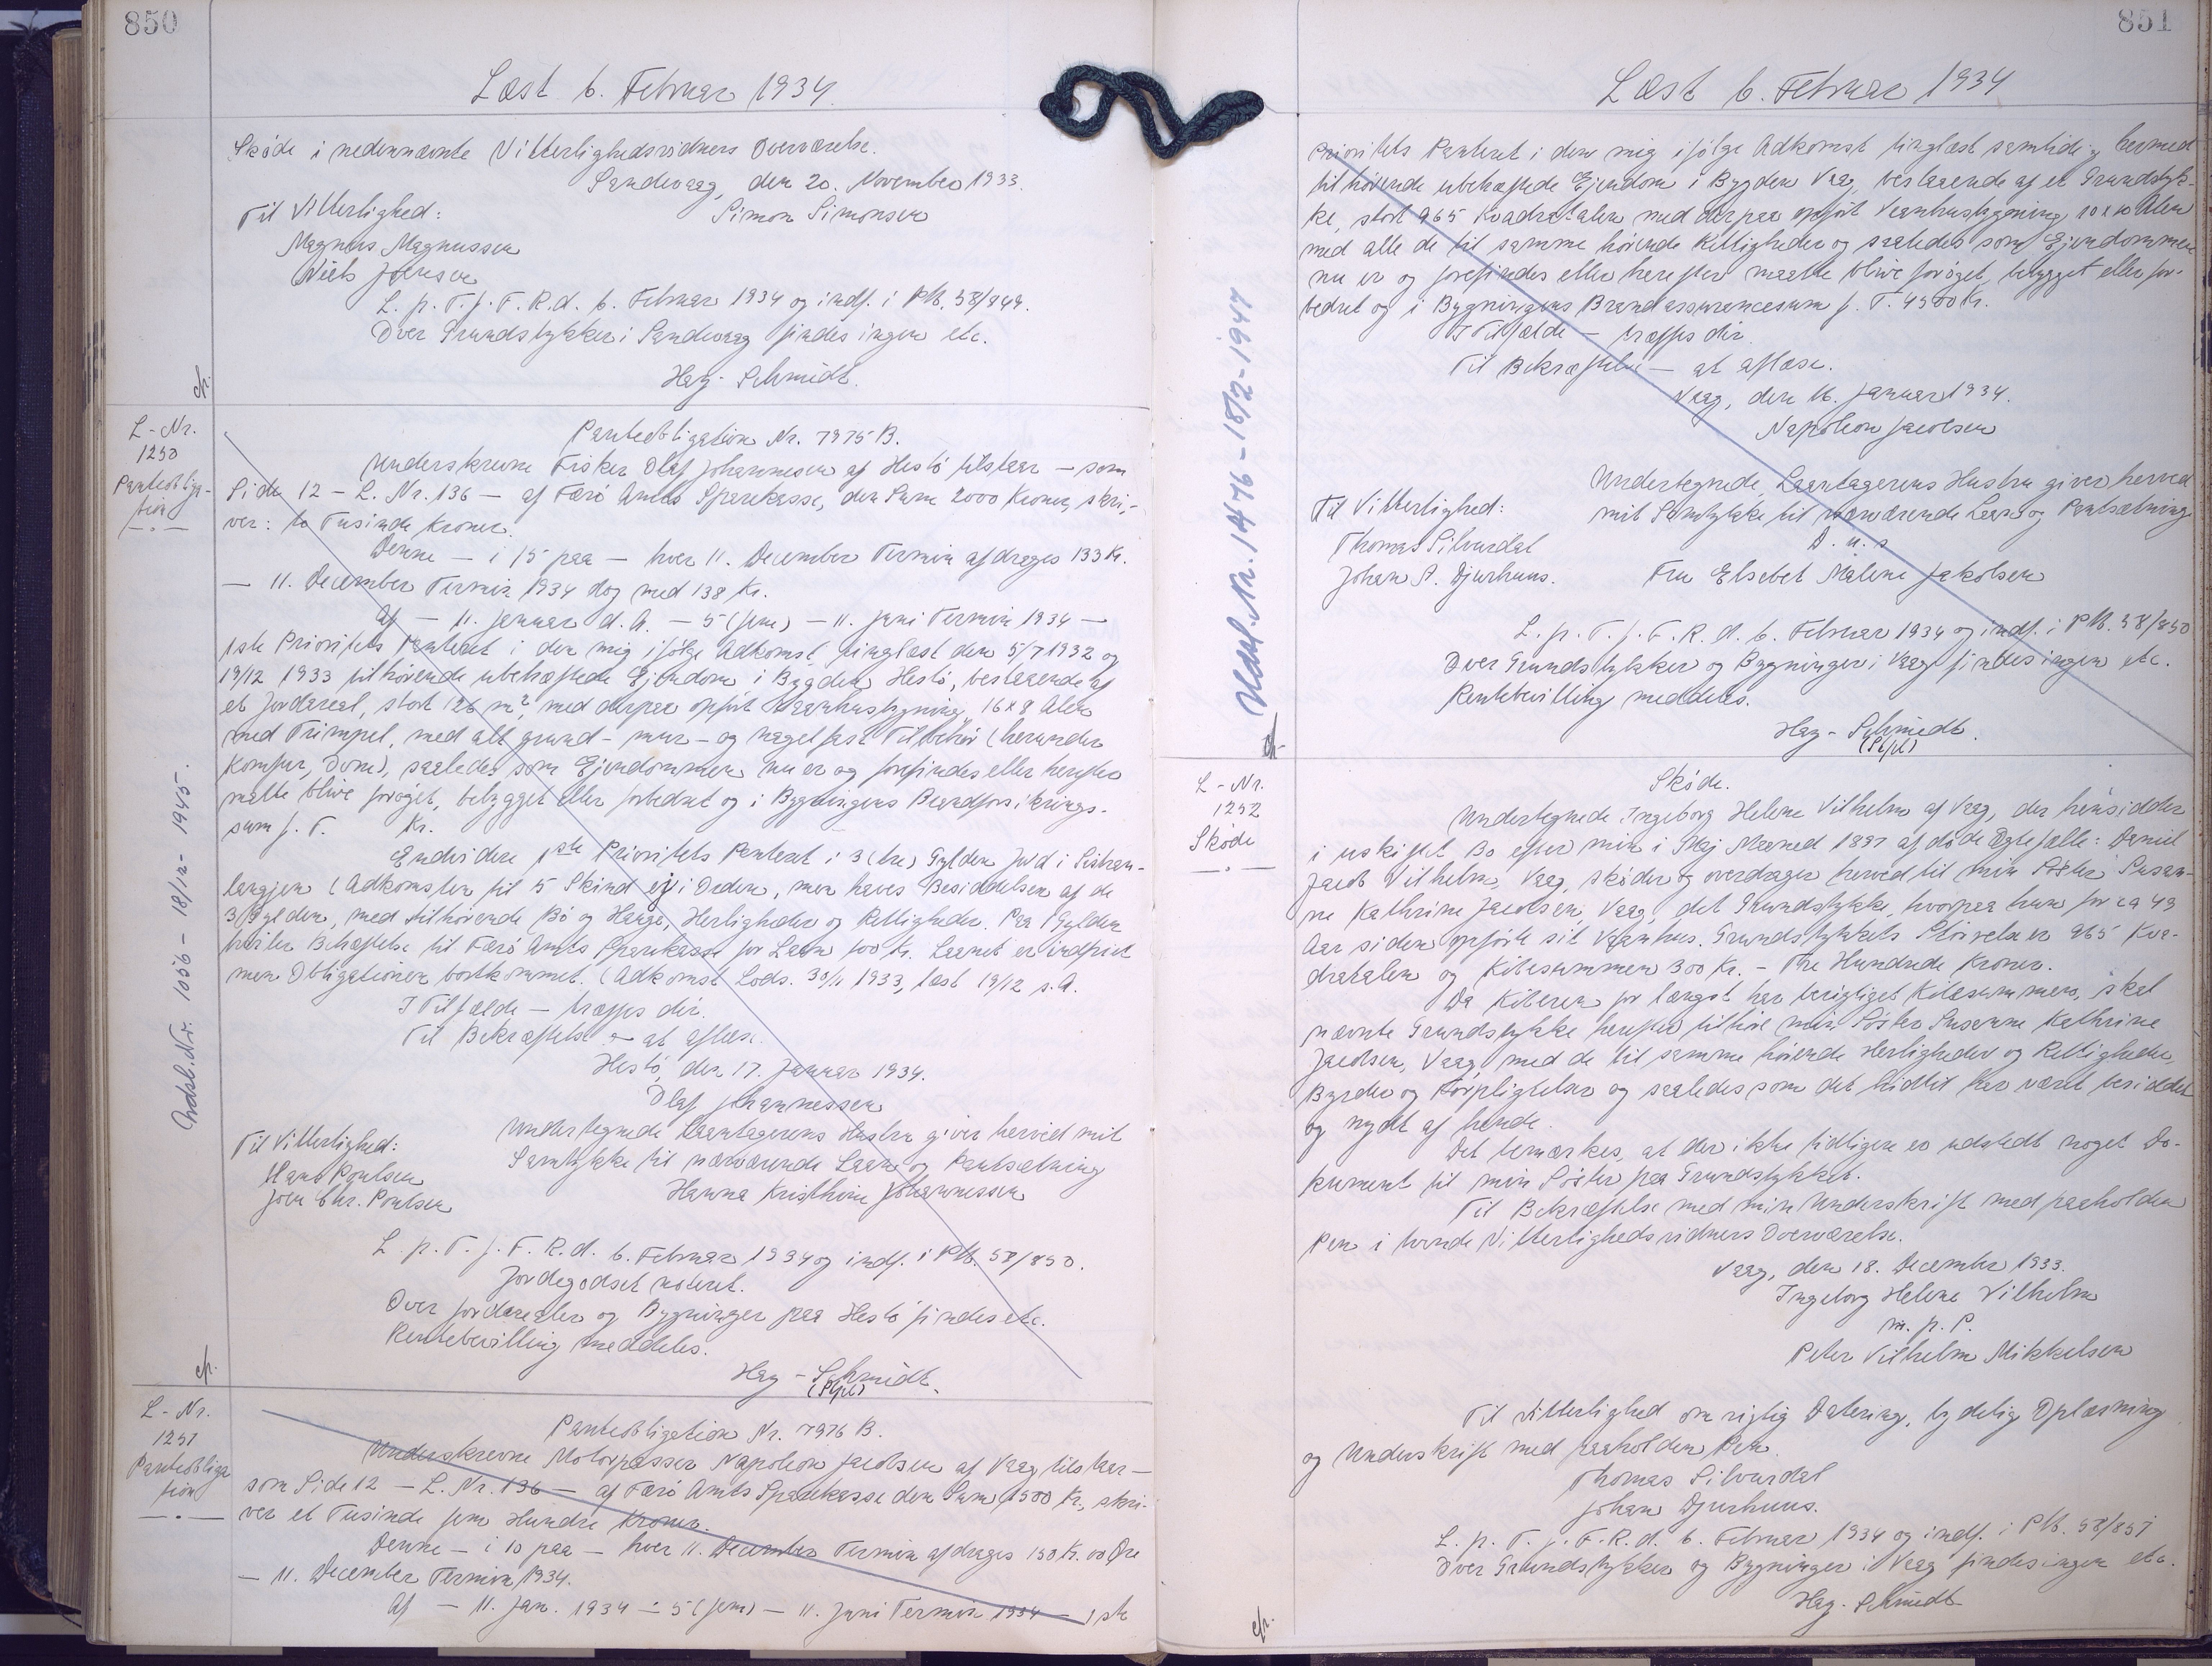 850
Læst 6. Februar 1934.
Skøde i nedennævnte Vitterlighedsvidners Overværelse.
Sandevaag, den 20. November 1933.
Til Vitterlighed:
Simon Simonsen
Magnus Magnussen
Niels Joensen
L. p. T. f. F. R. d. 6. Februar 1934 og indf. i PM. 58/849.
Over Grundstykker i Sandevaag findes ingen etc.
Hay-Schmidt.
cfr.
L-Nr.
1250
Panteobliga-
tion
Panteobligation Nr. 7975 B.
Underskrevne Fisker Olaf Johannesen af Hestö tilstaar – som
Side 12 – L. Nr. 136 – af Færö Amts Sparekasse, den Sum 2000 Kroner, skri-
ver: to Tusinde Kroner.
Denne – i 15 paa – hver 11. December Termin afdrages 133 Kr.
– 11. December Termin 1934 dog med 138 Kr.
Af – 11. Januar d. A. – 5 (fem) – 11. Juni Termin 1934 –
1ste Prioritets Panteret i den mig ifölge Adkomst, tinglæst den 5/7 1932 og
19/12 1933 tilhörende ubehæftede Ejendom i Bygden Hestö, bestaaende af
et Jordareal, stort 126 m², med derpaa opfört Vaanhusbygning, 16 x 8 Alen
med Trimpel, med alt grund- mur- og nagelfast Tilbehör (herunder
Komfur, Ovne), saaledes som Ejendommen nu er og forefindes eller herefter
maatte blive foröget, bebygget eller forbedret og i Bygningens Brandforsikrings-
sum f. T. Kr.
Endvidere 1ste Prioritets Panteret i 3 (tre) Gylden Jord i
langjen (Adkomsten til 5 Skind ej i Orden, men haves Besiddelsen af de
3 Gylden, med tilhörende Bö og Hauge, Herligheder og Rettigheder. Paa 1 Gylden
hviler Behæftelse til Færö Amts Sparekasse for Laan 500 Kr. Laanet er indfriet
men Obligationen bortkommet. (Adkomst Lods. 30/11 1933, læst 19/12 s. A.
I Tilfælde – træffes dér.
Til Bekræftelse – at aflæse.
Hestö, den 17. Januar 1934.
Olaf Johannessen
Undertegnede Laantagerens Hustru giver herved mit
Til Vitterlighed:
Samtykke til nærværende Laan og Pantsætning
Hans Poulsen
Hanna Kristhine Johannessen
Joen Chr. Poulsen
L. p. T. f. F. R. d. 6. Februar 1934 og indf. i PM. 58/850.
Jordegodset noteret.
Over Jordarealer og Bygninger paa Hestö findes etc.
Rentebevilling meddeles.
Hay-Schmidt.
(Stpl)
Udsl. Nr. 1056 – 18/12- 1945.
cfr.
L-Nr.
1251
Panteobliga
tion
Panteobligation Nr. 7976 B.
Underskrevne Motorpasser Napoleon Jacobsen af Vaag tilstaar –
som Side 12 – L. Nr. 136 – af Færö Amts Sparekasse den Sum 1500 Kr., skri-
ver et Tusinde fem Hundre Kroner.
Denne – i 10 paa – hver 11. December Termin afdrages 150 Kr. 00 Øre
– 11. December Termin 1934.
Af – 11. Jan. 1934 – 5 (fem) – 11. Juni Termin 1934 – 1ste
851
Læst 6. Februar 1934
Prioritets Panteret i den mig ifølge Adkomst tinglæst samtidig hermed
tilhörende ubehæftede Ejendom i Bygden Vaag, bestaaende af et Grundstyk-
ke, stort 965 Kvadratalen med derpaa opført Vaanhusbygning 10 x 10 Alen
med alle de til samme hörende Rettigheder og saaledes som Ejendommen
nu er og forefindes eller herefter maatte blive foröget, bebygget eller for-
bedret og i Bygningens Brandassurancesum f. T. 4500 Kr.
I Tilfælde – træffes dér.
Til Bekræftelse – at aflæse.
Vaag, den 16. Januar 1934.
Napoleon Jacobsen
Undertegnede, Laantagerens Hustru giver herved
Til Vitterlighed:
mit Samtykke til nærværende Laan og Pantsætning
Thomas Silvurdal
D. u. s
Johan A. Djurhuus.
Fru Elsebet Malene Jakobsen
L. p. T. f. F. R. d. 6. Februar 1934 og indf. i PM. 58/850
Over Grundstykker og Bygninger i Vaag findes ingen etc.
Rentebevilling meddeles.
Hay-Schmidt.
(Stpl)
Udsl. Nr. 1476 – 18/2 - 1947
cfr.
L-Nr.
1252
Skøde
Skøde.
Undertegnede Ingeborg Helene Vilhelm af Vaag, der hensidder
i uskiftet Bo efter min i Maj Maaned 1897 afdøde Ægtefælle: Daniel
Jacob Vilhelm, Vaag, skøder og overdrager herved til min Søster Susan-
ne Kathrine Jacobsen, Vaag, det Grundstykke, hvorpaa hun for ca 49
Aar siden opførte sit Vaanhus. Grundstykkets Størrelse er 965 Kva-
dratalen og Købesummen 300 Kr. – Tre Hundrede Kroner.
Da Køberen for længst har berigtiget Købesummen, skal
nævnte Grundstykke herefter tilhöre min Søster Susanne Kathrine
Jacobsen, Vaag med de til samme hörende Herligheder og Rettigheder,
Byrder og Forpligtelser og saaledes som det hidtil har været besiddet
og nydt af hende.
Det bemærkes, at der ikke tidligere er udstedt noget Do-
kument til min Søster paa Grundstykket.
Til Bekræftelse med min Underskrift med paaholden
Pen i tvende Vitterlighedsvidners Overværelse.
Vaag, den 18. December 1933.
Ingeborg Helene Vilhelm
m. p. P.
Peter Vilhelm Mikkelsen
Til Vitterlighed om rigtig Datering, tydelig Oplæsning
og Underskrift med paaholden Pen.
Thomas Silvurdal
Johan Djurhuus.
L. p. T. f. F. R. d. 6. Februar 1934 og indf. i PM. 58/851
Over Grundstykker og Bygninger i Vaag findes ingen etc.
Hay-Schmidt
cfr.